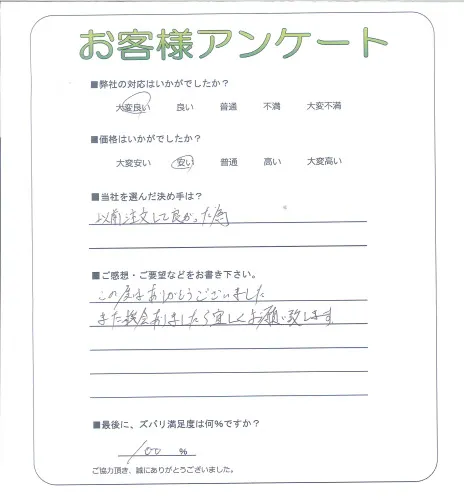 お客様アンケート
■弊社の対応はいかがでしたか？
大変良い 良い 普通 不満 大変不満
■価格はいかがでしたか？
大変安い 安い 普通 高い 大変高い
■当社を選んだ決め手は？
以前注文して良かった為
■ご感想・ご要望などをお書き下さい。
この度はありがとうございました
また機会ありましたら宜しくお願い致します
■最後に、ズバリ満足度は何%ですか？
100 %
ご協力頂き、誠にありがとうございました。